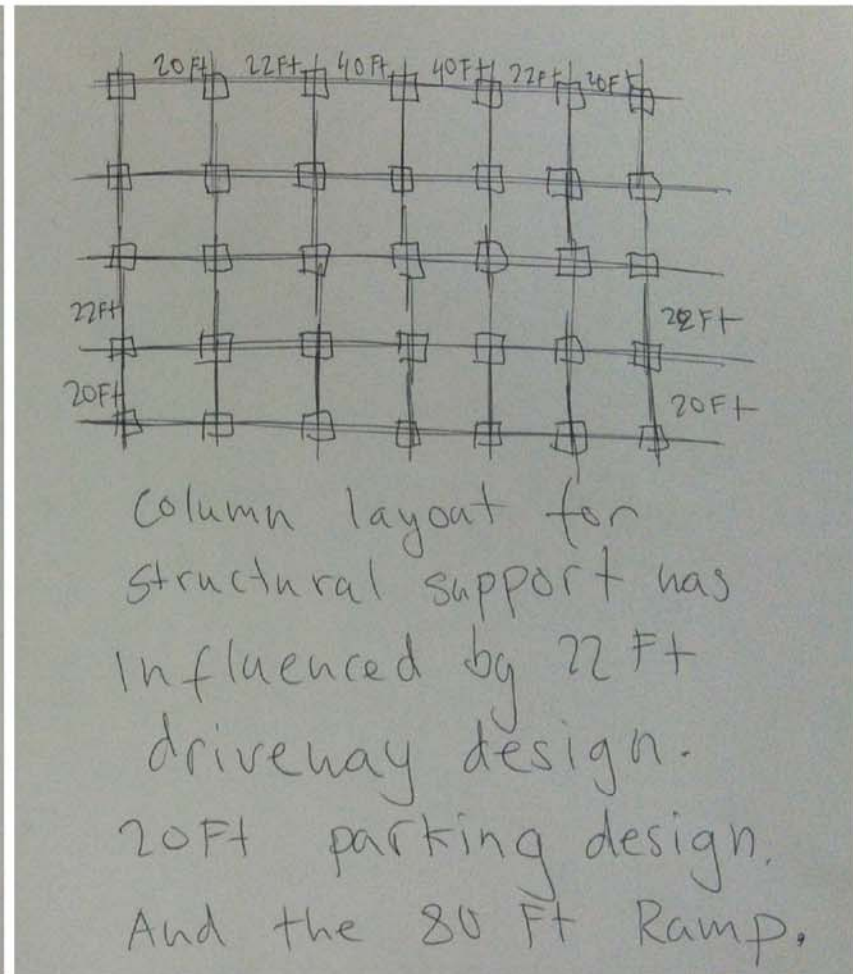 20Ft 22Ft 40Ft 40Ft 22Ft 20Ft
22Ft 22Ft
20Ft 20Ft
Column layout for
structural support has
Influenced by 22 Ft
driveway design.
20Ft parking design.
And the 80 Ft Ramp.